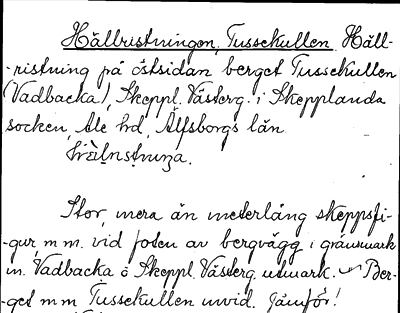 Hällristningen, Tussekullen Häll-
-ristning på östsidan berget Tussekullen
(Vadbacka), Skeppl. Västerg. i Skepplanda
socken, Ale hd, Älfsborgs län

Stor, mera än meterlång skeppsfi-
-gur, m m. vid foten av bergvägg i gränsmark
m. Vadbacka ö Skeppl. Västerg. utmark. Ber-
-get m m Tussekullen invid. Jämför!